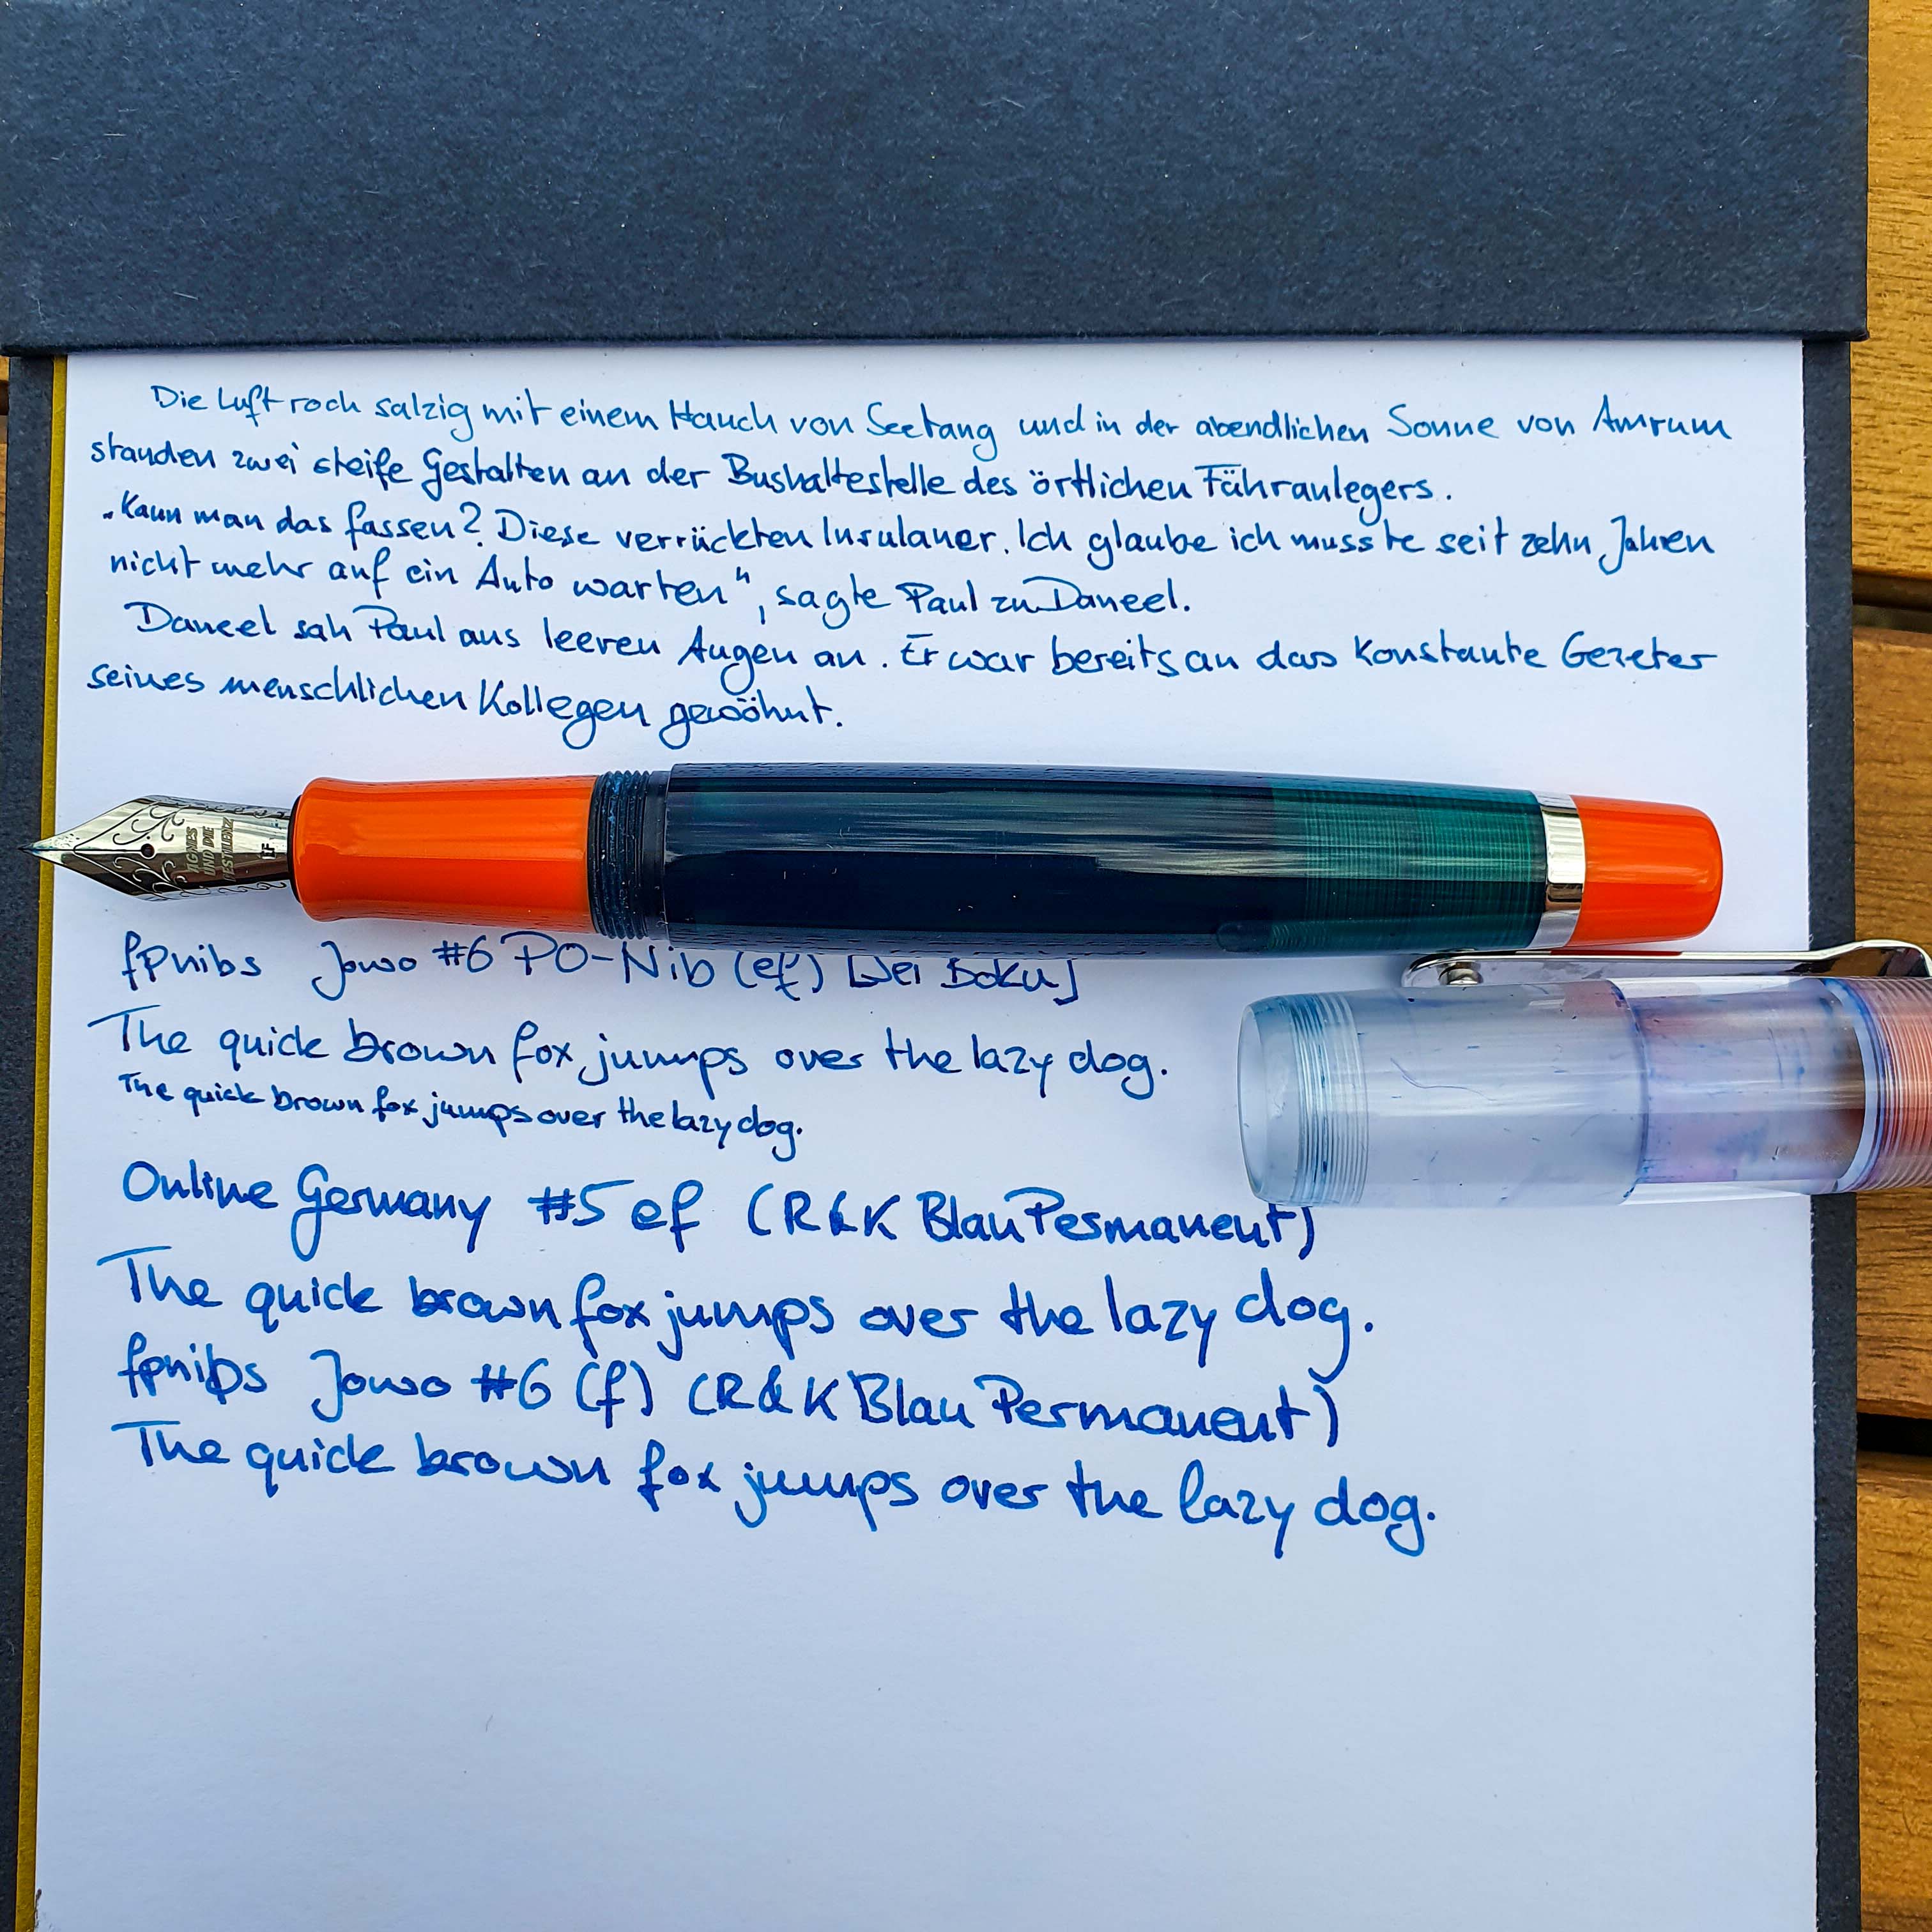 Die Luft roch salzig mit einem Hauch von Seetang und in der abendlichen Sonne von Amrum
standen zwei steife Gestalten an der Bushaltestelle des örtlichen Fähranlegers.
„Kann man das fassen? Diese verrückten Insulaner. Ich glaube ich musste seit zehn Jahren
nicht mehr auf ein Auto warten“, sagte Paul zu Daneel.
Daneel sah Paul aus leeren Augen an. Er war bereits an das konstante Gezeter
seines menschlichen Kollegen gewöhnt.
AGNES
UND DIE
PESTILENZ
EF
fpnibs Jowo #6 PO-Nib (ef) [Sei Boku]
The quick brown fox jumps over the lazy dog.
The quick brown fox jumps over the lazy dog.
Online Germany #5 ef (R&K Blau Permanent)
The quick brown fox jumps over the lazy dog.
fpnibs Jowo #6 (f) (R&K Blau Permanent)
The quick brown fox jumps over the lazy dog.